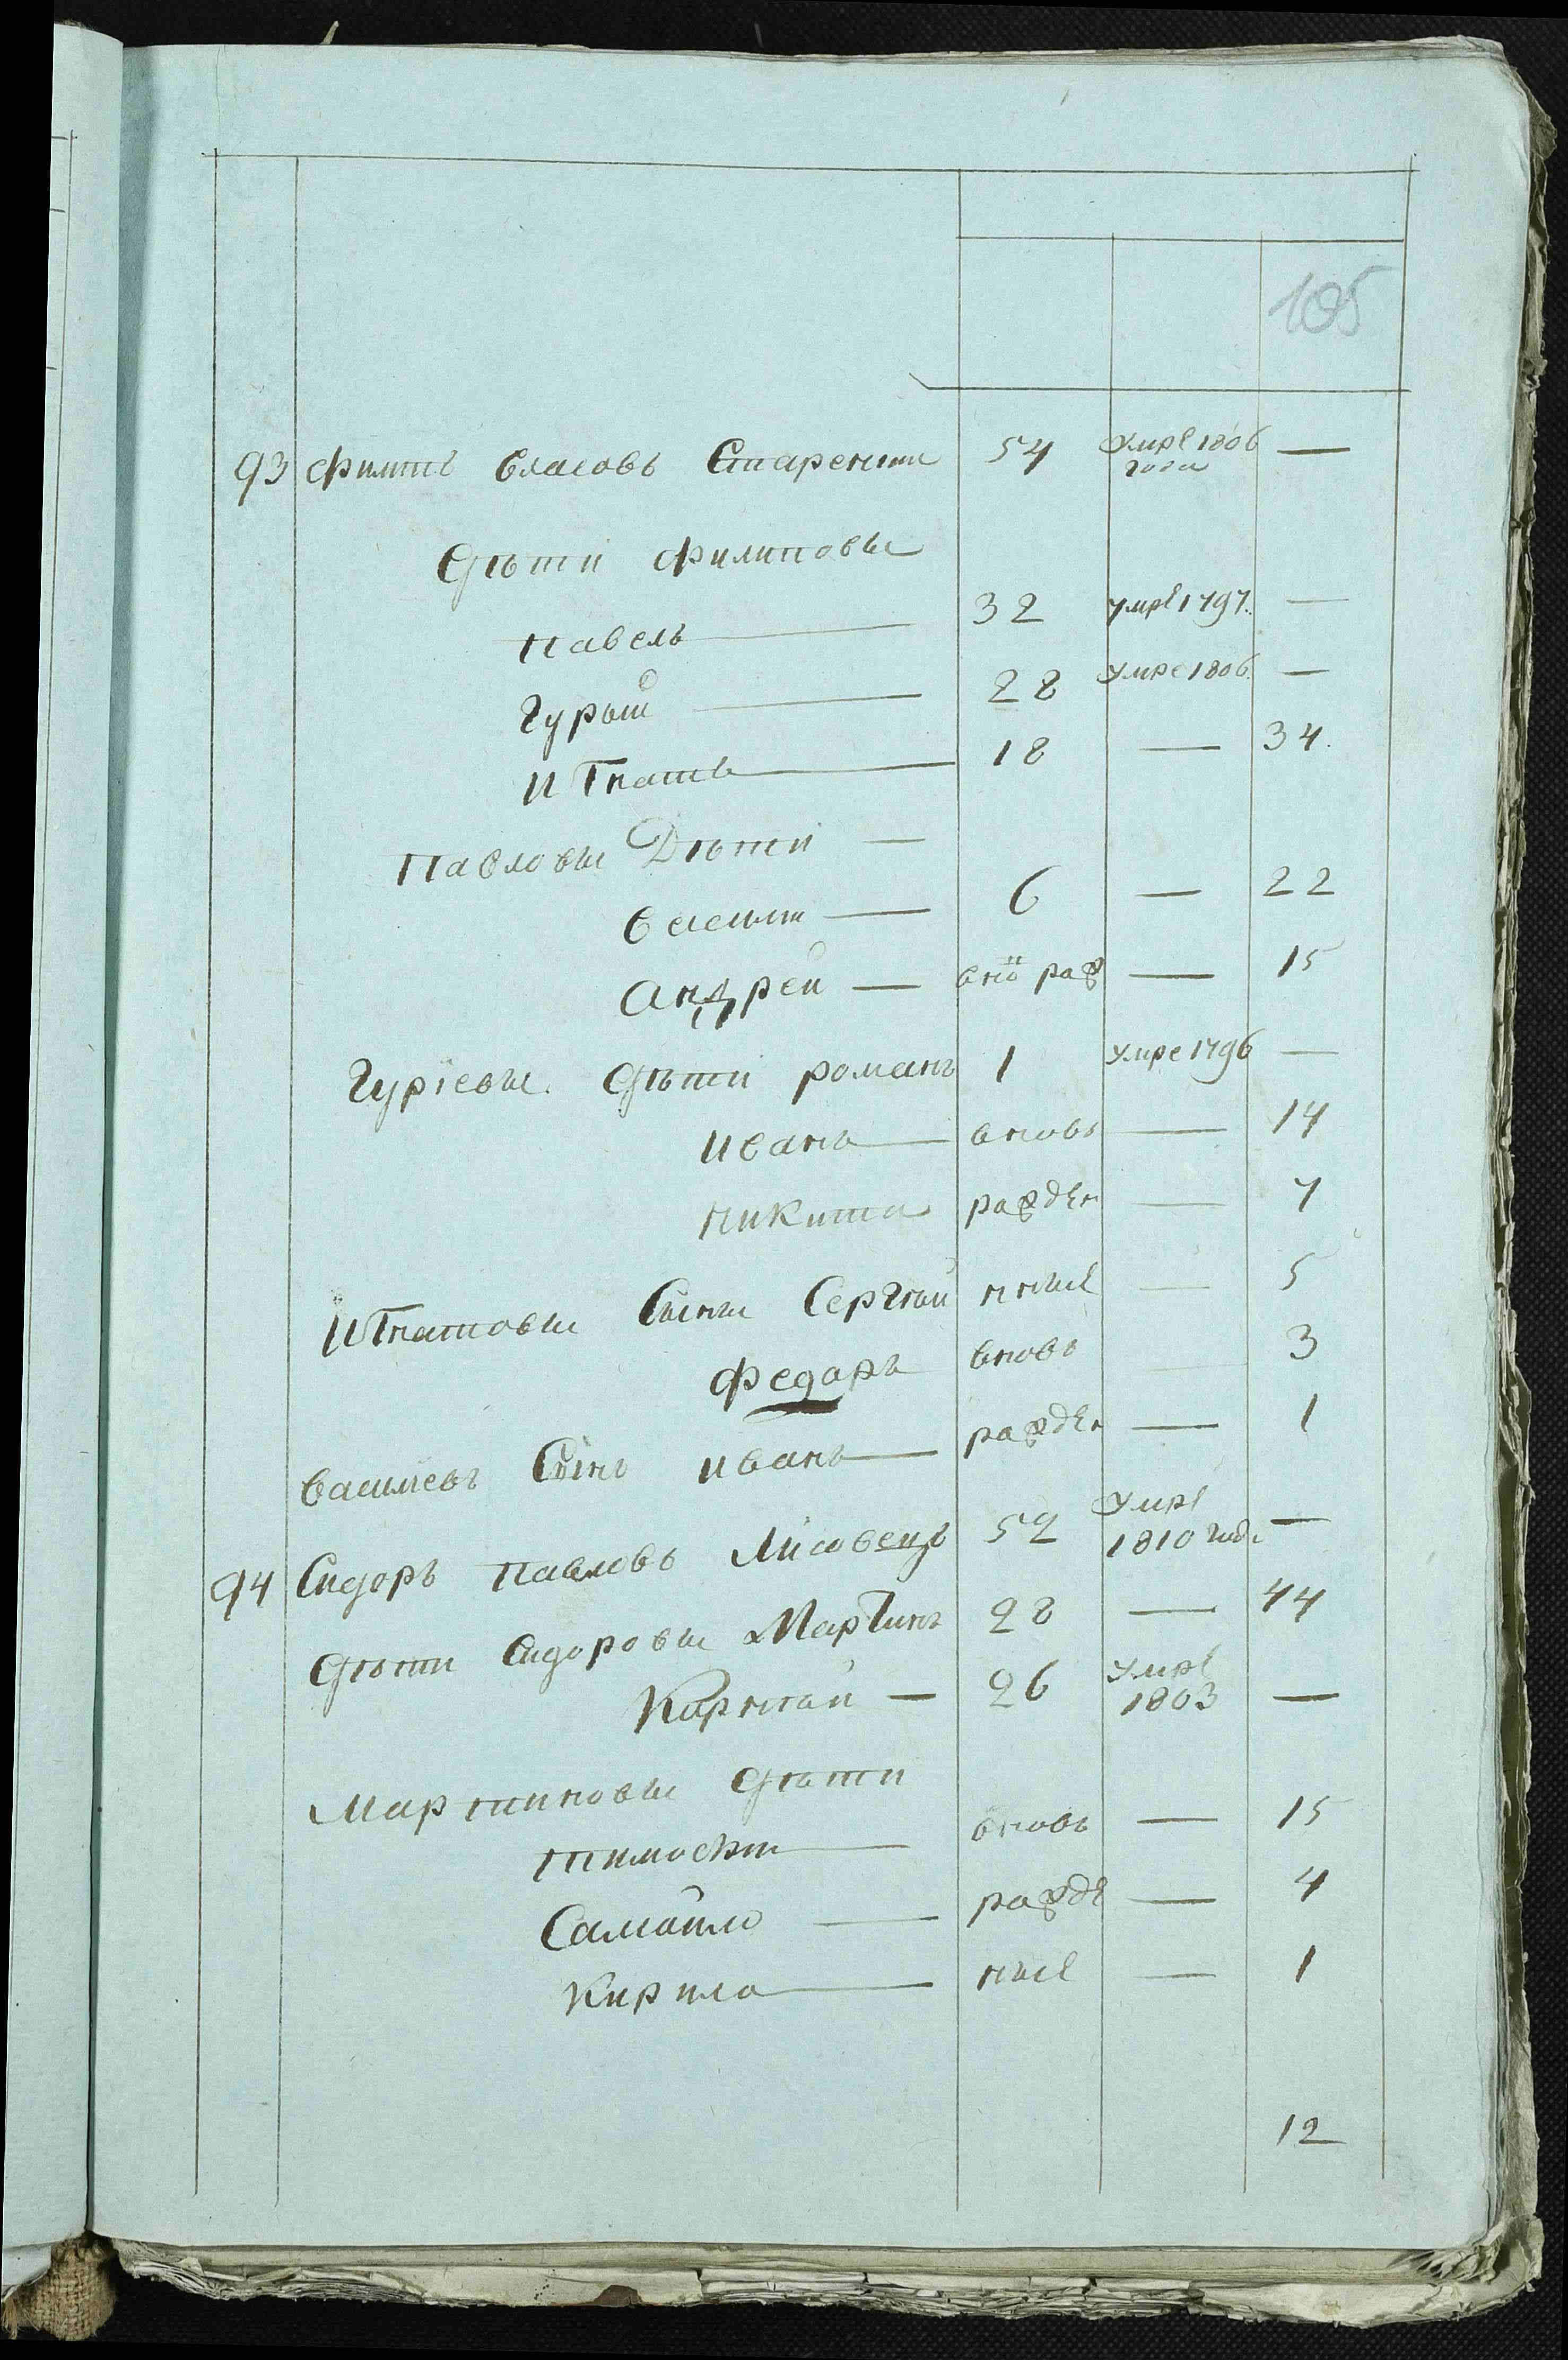 105
93 Филипъ власовъ 54 Умре 1806 года —
Дѣти филиповы
Павелъ — 32 умре 1797. —
Гурый — 28 умре 1806. —
Игнатъ — 18 — 34.
Павловы Дѣти —
василии — 6 — 22
Андрей — вно раж — 15
Гуріевы. Дѣти романъ 1 умре 1796 —
иванъ — вновь — 14
никита ражден — 7
Игнатовы Сыны Сергѣй нные — 5
Федоръ вновь — 3
василіевъ Сынъ иванъ — ражден — 1
94 Сидоръ павловъ Лисовецъ 52 умре 1810 года —
Дѣти Сидоровы Мартинъ 28 — 44
Корнѣй — 26 умре 1803 —
Мартиновы Дѣти
тимофѣи — вновь — 15
Самойло — ражде — 4
Кирило — ные — 1
12